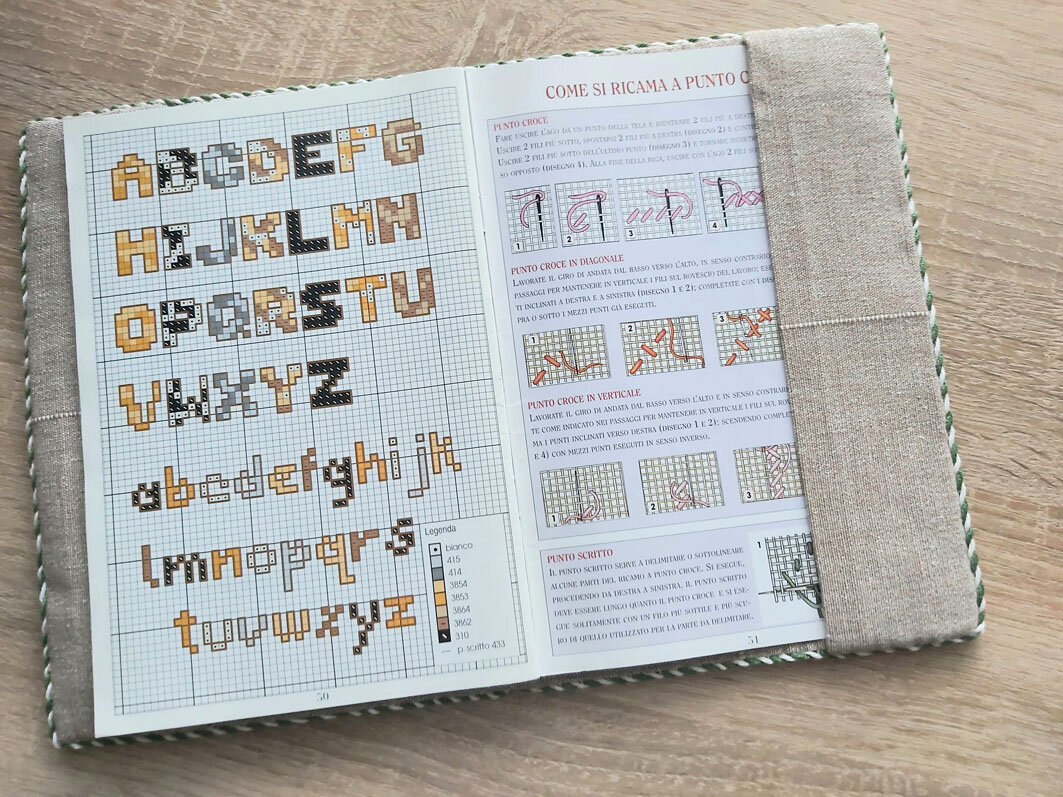 ABCDEFG
HIJKLMN
OPQRSTU
VWXYZ
abcdefghijk
lmnopqrs
tuvwxyz
Legenda
bianco
415
414
3854
3853
3864
3862
310
p. scritto 433
50
COME SI RICAMA A PUNTO C
PUNTO CROCE
FARE USCIRE L'AGO DA UN PUNTO DELLA TELA E RIENTRARE 2 FILI PIÙ A DEST
USCIRE 2 FILI PIÙ SOTTO, SPOSTARSI 2 FILI PIÙ A DESTRA (DISEGNO 2) E CONTI
USCIRE 2 FILI PIÙ SOTTO DELL'ULTIMO PUNTO (DISEGNO 3) E TORNARE INDIET
SO OPPOSTO (DISEGNO 4). ALLA FINE DELLA RIGA, USCIRE CON L'AGO 2 FILI
1 2 3 4
PUNTO CROCE IN DIAGONALE
LAVORATE IL GIRO DI ANDATA DAL BASSO VERSO L'ALTO, IN SENSO CONTRARIO
PASSAGGI PER MANTENERE IN VERTICALE I FILI SUL ROVESCIO DEL LAVORO; ESE
TI INCLINATI A DESTRA E A SINISTRA (DISEGNO 1 E 2); COMPLETATE CON I DIS
PRA O SOTTO I MEZZI PUNTI GIÀ ESEGUITI.
1 2 3
PUNTO CROCE IN VERTICALE
LAVORATE IL GIRO DI ANDATA DAL BASSO VERSO L'ALTO E IN SENSO CONTRAR
TE COME INDICATO NEI PASSAGGI PER MANTENERE IN VERTICALE I FILI SUL ROV
MA I PUNTI INCLINATI VERSO DESTRA (DISEGNO 1 E 2); SCENDENDO COMPLE
E 4) CON MEZZI PUNTI ESEGUITI IN SENSO INVERSO.
1 2 3
PUNTO SCRITTO
IL PUNTO SCRITTO SERVE A DELIMITARE O SOTTOLINEARE
ALCUNE PARTI DEL RICAMO A PUNTO CROCE. SI ESEGUE,
PROCEDENDO DA DESTRA A SINISTRA. IL PUNTO SCRITTO
DEVE ESSERE LUNGO QUANTO IL PUNTO CROCE E SI ESE-
GUE SOLITAMENTE CON UN FILO PIÙ SOTTILE E PIÙ SCU-
RO DI QUELLO UTILIZZATO PER LA PARTE DA DELIMITARE.
1
51